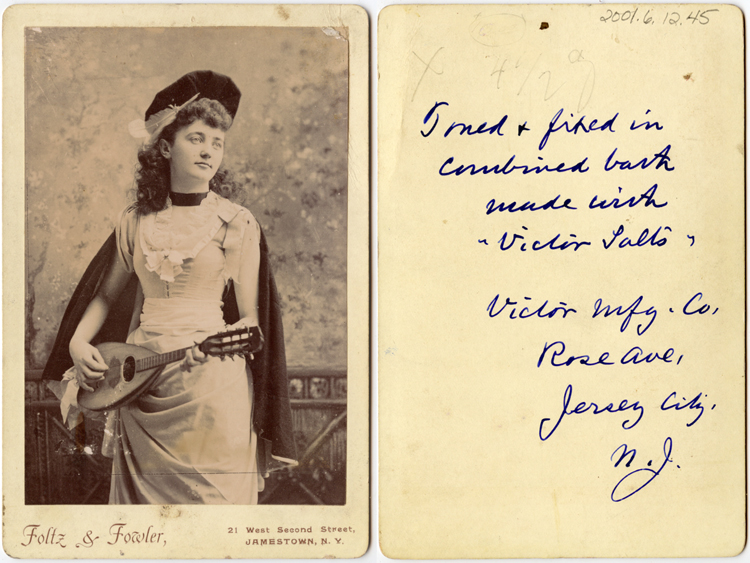 Foltz & Fowler,
21 West Second Street,
JAMESTOWN, N. Y.
2001.6.12.45
X 4 1/2
Toned + fixed in
combined bath
made with
"Victor Salts"
Victor Mfg. Co.
Rose Ave.
Jersey City.
N.J.